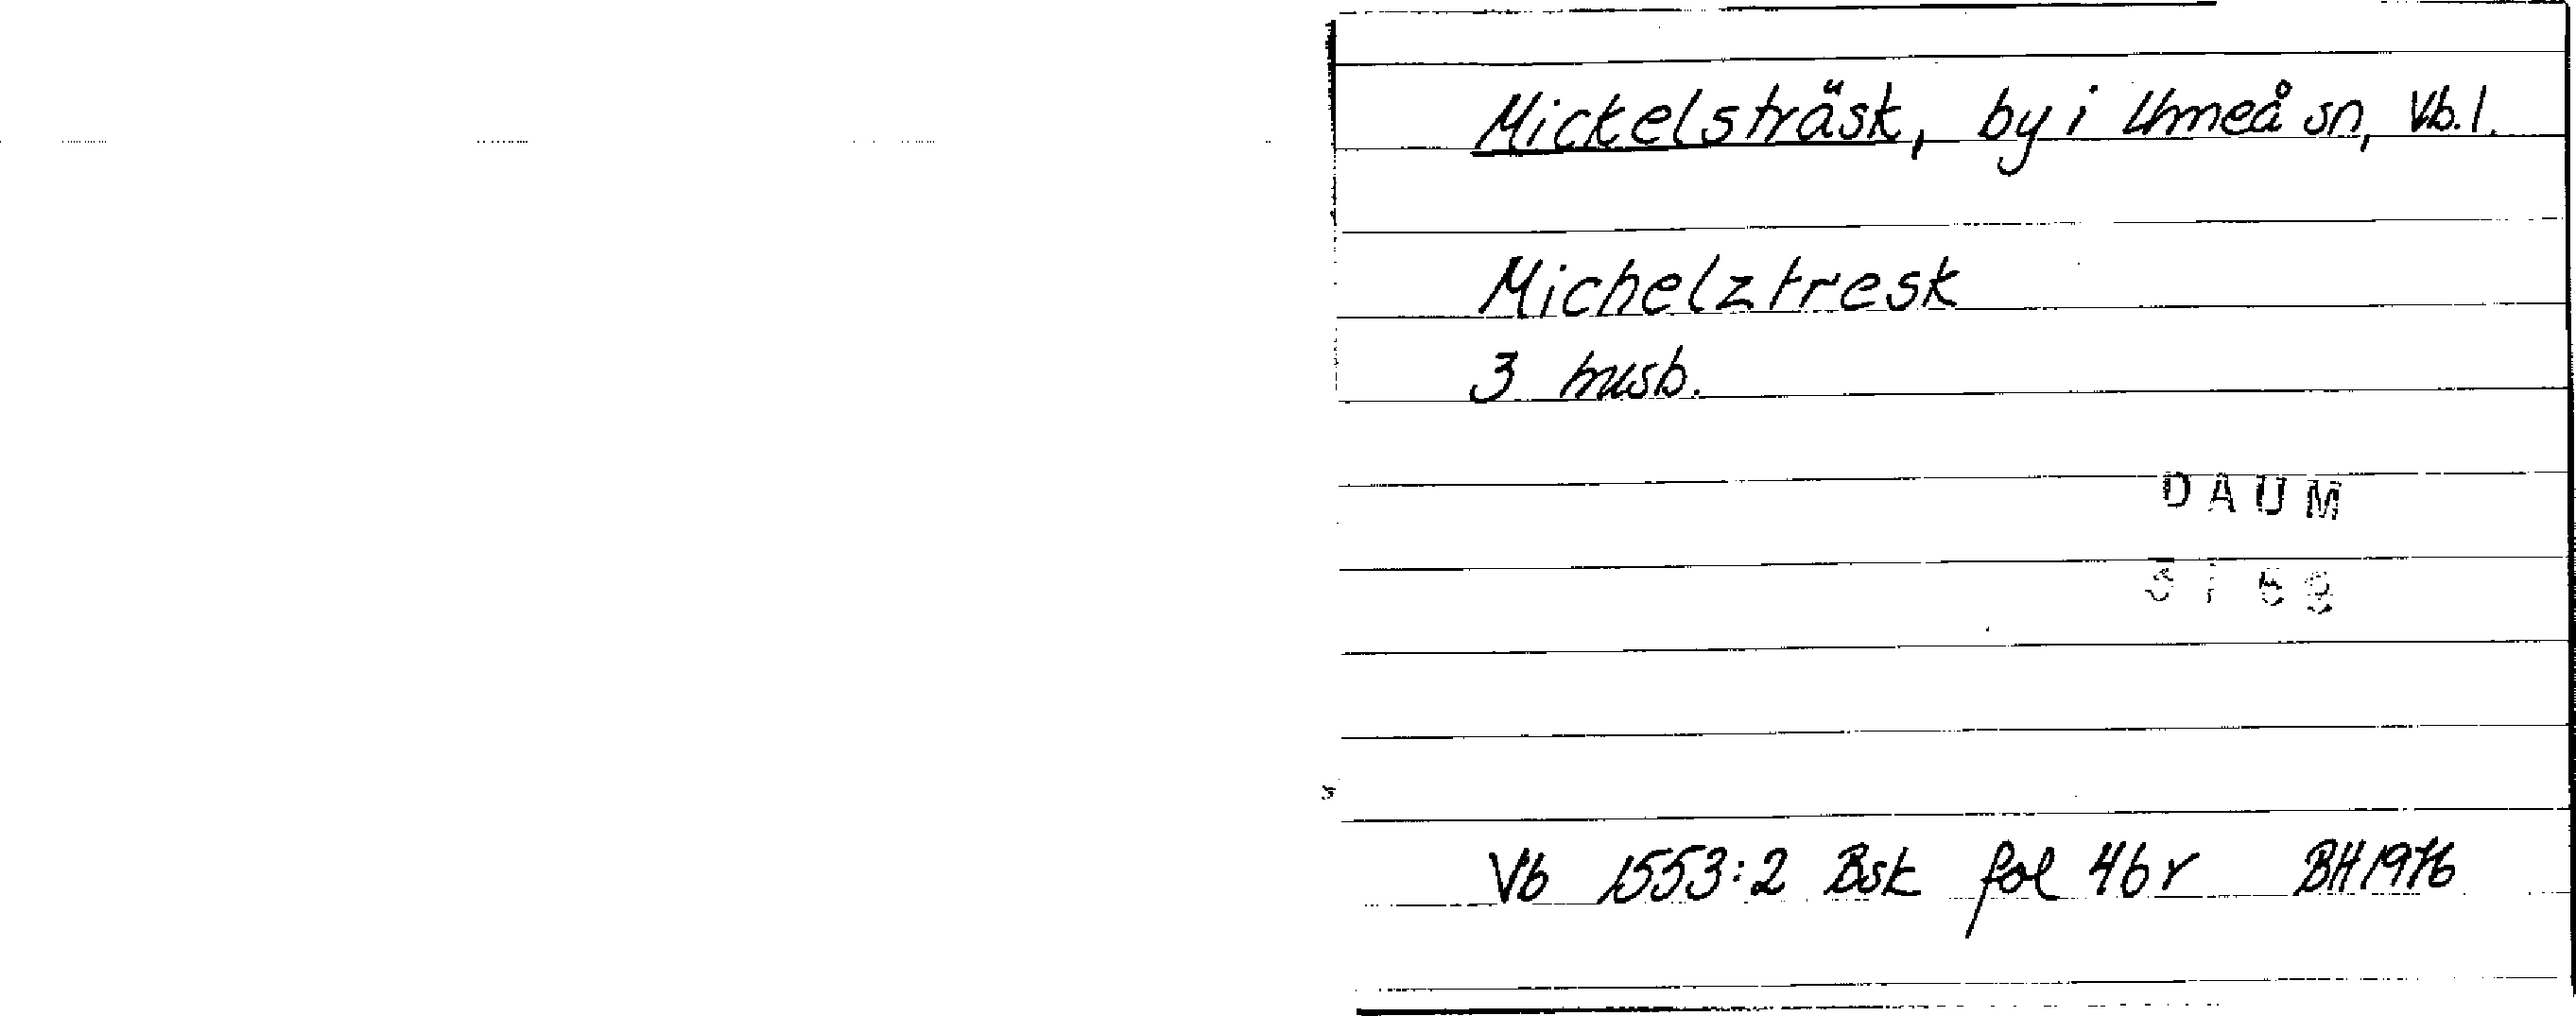 Mickelsträsk, by i Umeå sn, Vb. l.
Michelztresk
3 husb.
DAUM
Vb 1553:2 Bsk fol 46r BH 1976